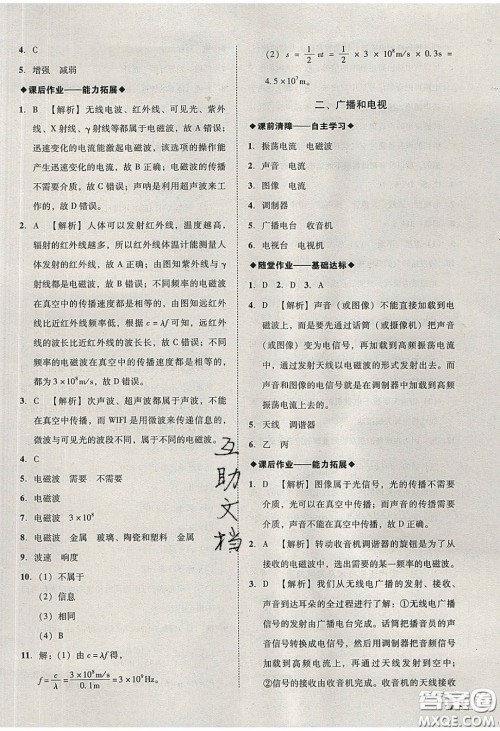 4. C
5. 增强 减弱
◆课后作业——能力拓展◆
1. B 【解析】无线电波、红外线、可见光、紫外
线、X 射线、γ 射线等都属于电磁波,故 A 错误;
迅速变化的电流能激起电磁波,该选项的操作能产
生迅速变化的电流,故 B 正确;电磁波的
传播不需要介质,故 C 错误;声呐利用超声波工
作,故 D 错误。
2. A 【解析】人体可以发射红外线,温度越高,
辐射的红外线越多,所以红外线体温计能测量人
发射的红外线,故 A 正确;由图知紫外线与
γ 射线都是电磁波,故 B 错误;由图知电磁波在
真空中的传播速度都相同,由图知远红外
线比近红外线频率低,根据 c=λf 可知远红外线
的波长比近红外线波长长,故 C 错误;由图知不
同频率的电磁波在真空中的传播速度相同,均为
3×10⁸m/s,故 D 错误。
3. C 【解析】次声波、超声波都属于声波,不能
在真空中传播,而 WIFI 是用微波来传递信息的,
微波与可见光的波段不同,属于电磁波。
4. C
5. 电磁波 需要 不需要
6. 电磁波
7. 电磁波 3×10⁸
8. 电磁波 金属 玻璃、陶瓷和塑料 金属
9. 波速 响度
10. (1) 不属于
(2) 信息
(3) 相同
(4) B
11. 解:(1) 由 c=λf 得,
f=c/λ=3×10⁸m/s/0.1m=3×10⁹Hz。
(2) s=1/2 vt=1/2×3×10⁸m/s×0.3s=
4.5×10⁷m。
二、广播和电视
◆课前清障——自主学习◆
1. 振荡电流 电磁波
2. 声音 电流
3. 图像 电流
4. 调制器
5. 广播电台 收音机
6. 电视台 电视机
◆随堂作业——基础达标◆
1. D 2. D 3. A
4. D 【解析】声音(或图像)不能直接加载到电
磁波上,而是通过话筒(或摄像机)把声音
(或图像)变为电信号,再加载到高频电流上,
通过发射天线以电磁波的形式发射出去。而
声音和图像的电信号就是在调制器中加载到高频
振荡电流上去的。
5. 天线 调谐器
6. 乙 丙
◆课后作业——能力拓展◆
1. D 【解析】图像属于光信号,光的传播不需要
介质,光可以在真空中传播;而声音的传播需要
介质,声音不可以在真空中传播。
2. D
3. A 【解析】转动收音机调谐器的旋钮是为了从
接收的电磁波中,选出需要的某一频率的电磁波。
4. D 【解析】从无线电广播的发射、接收、
声音到达耳朵的全过程进行了解:①无线电广播
信号的发射由广播电台完成。话筒把播音员的
声音信号转换成电信号,然后用调制器把音频信号
加载到高频电流上,再通过天线发射到空中。
②信号的接收由收音机完成。收音机的天线接收
互助文档
答案圈
MXQE.COM